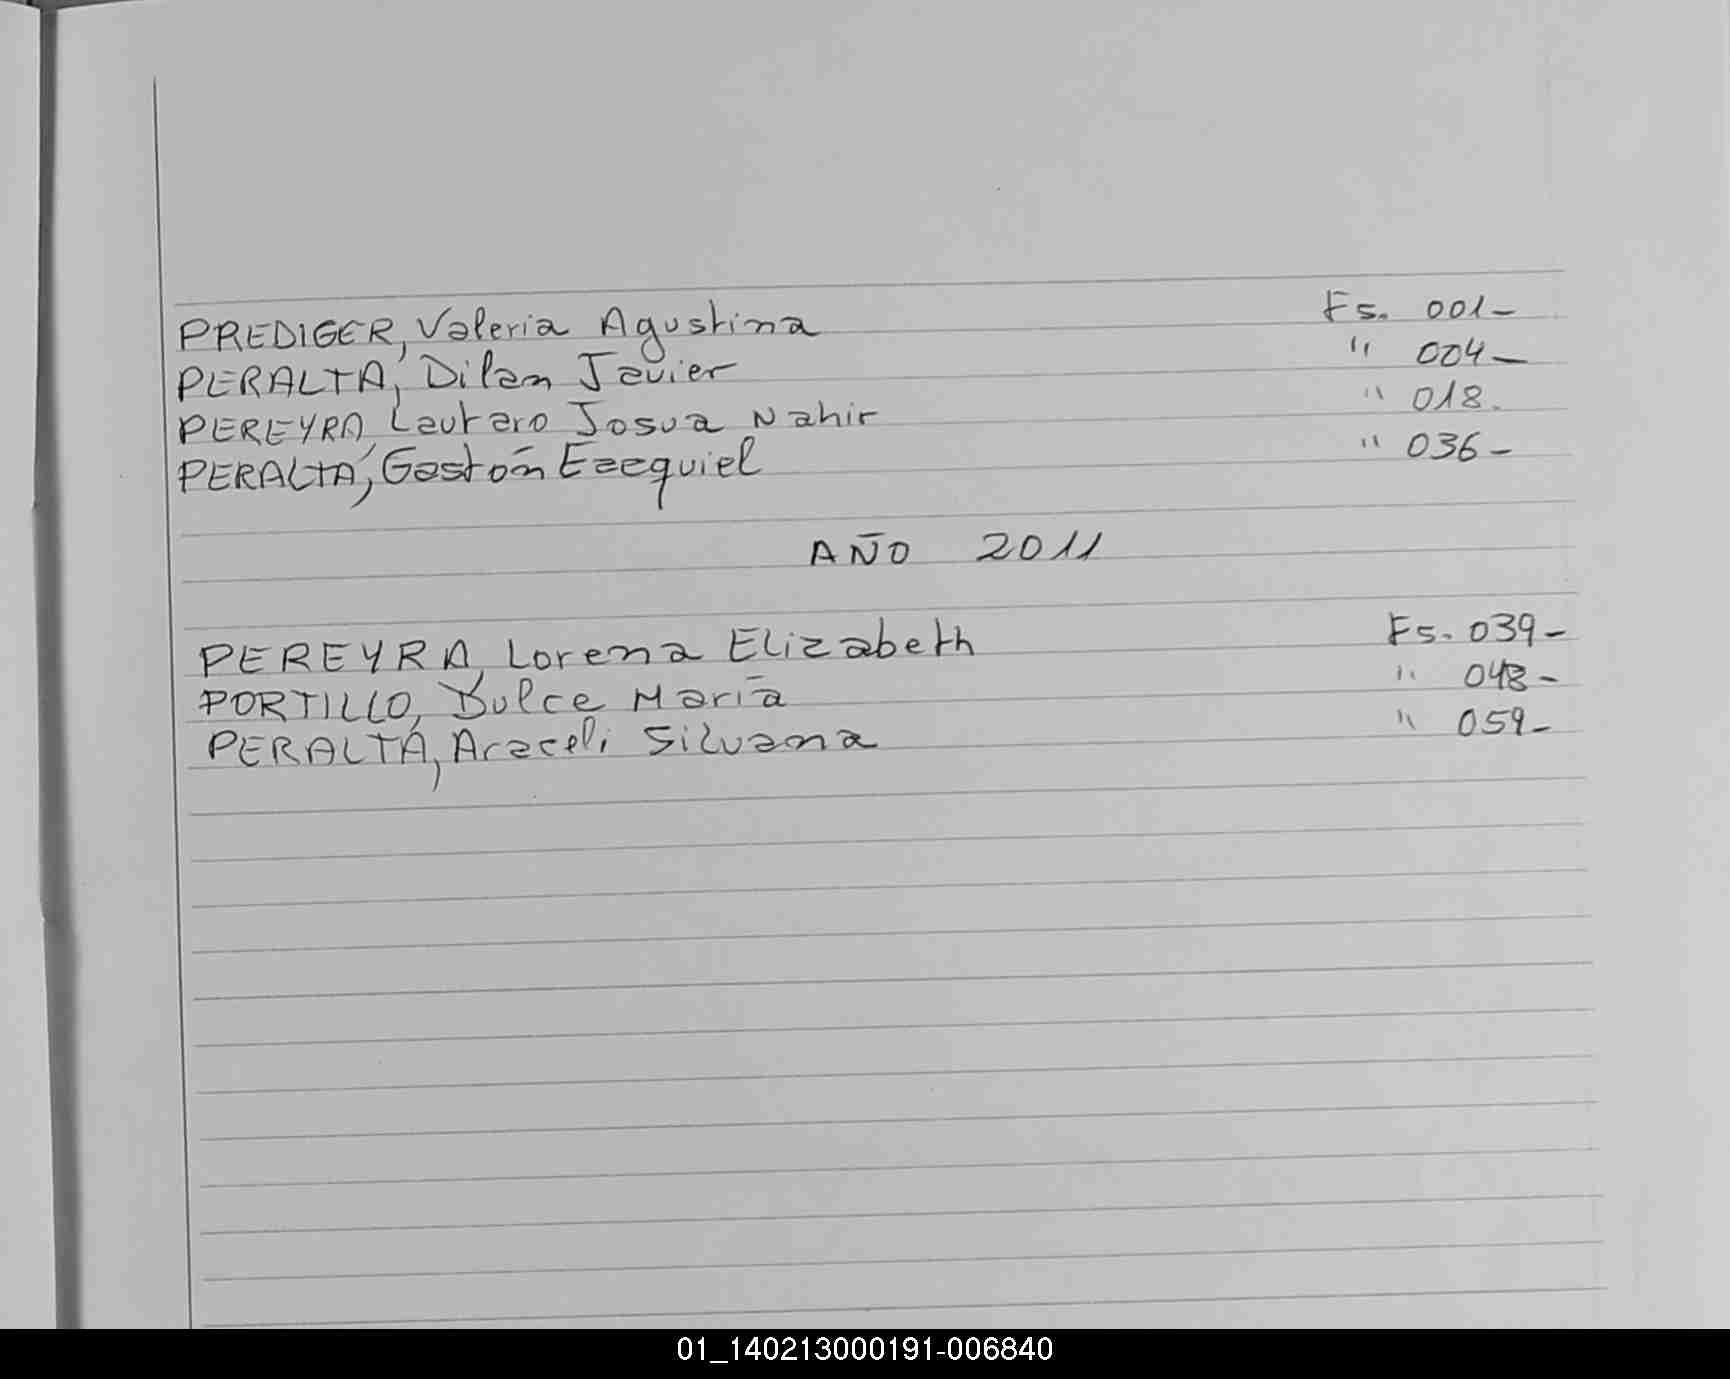 PREDIGER, Valeria Agustina Fs. 001-
PERALTA, Dilan Javier " 004-
PEREYRA, Lautaro Josua Nahir " 018.
PERALTA, Gastón Ezequiel " 036-
AÑO 2011
PEREYRA, Lorena Elizabeth Fs. 039-
PORTILLO, Dulce María " 048-
PERALTA, Araceli Silvana " 059-
01_140213000191-006840